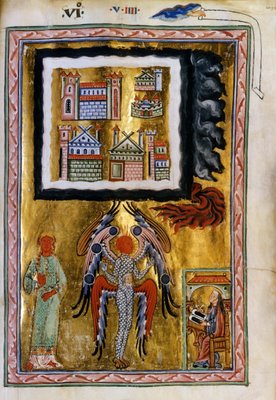 ·VI· ·V·IIII·